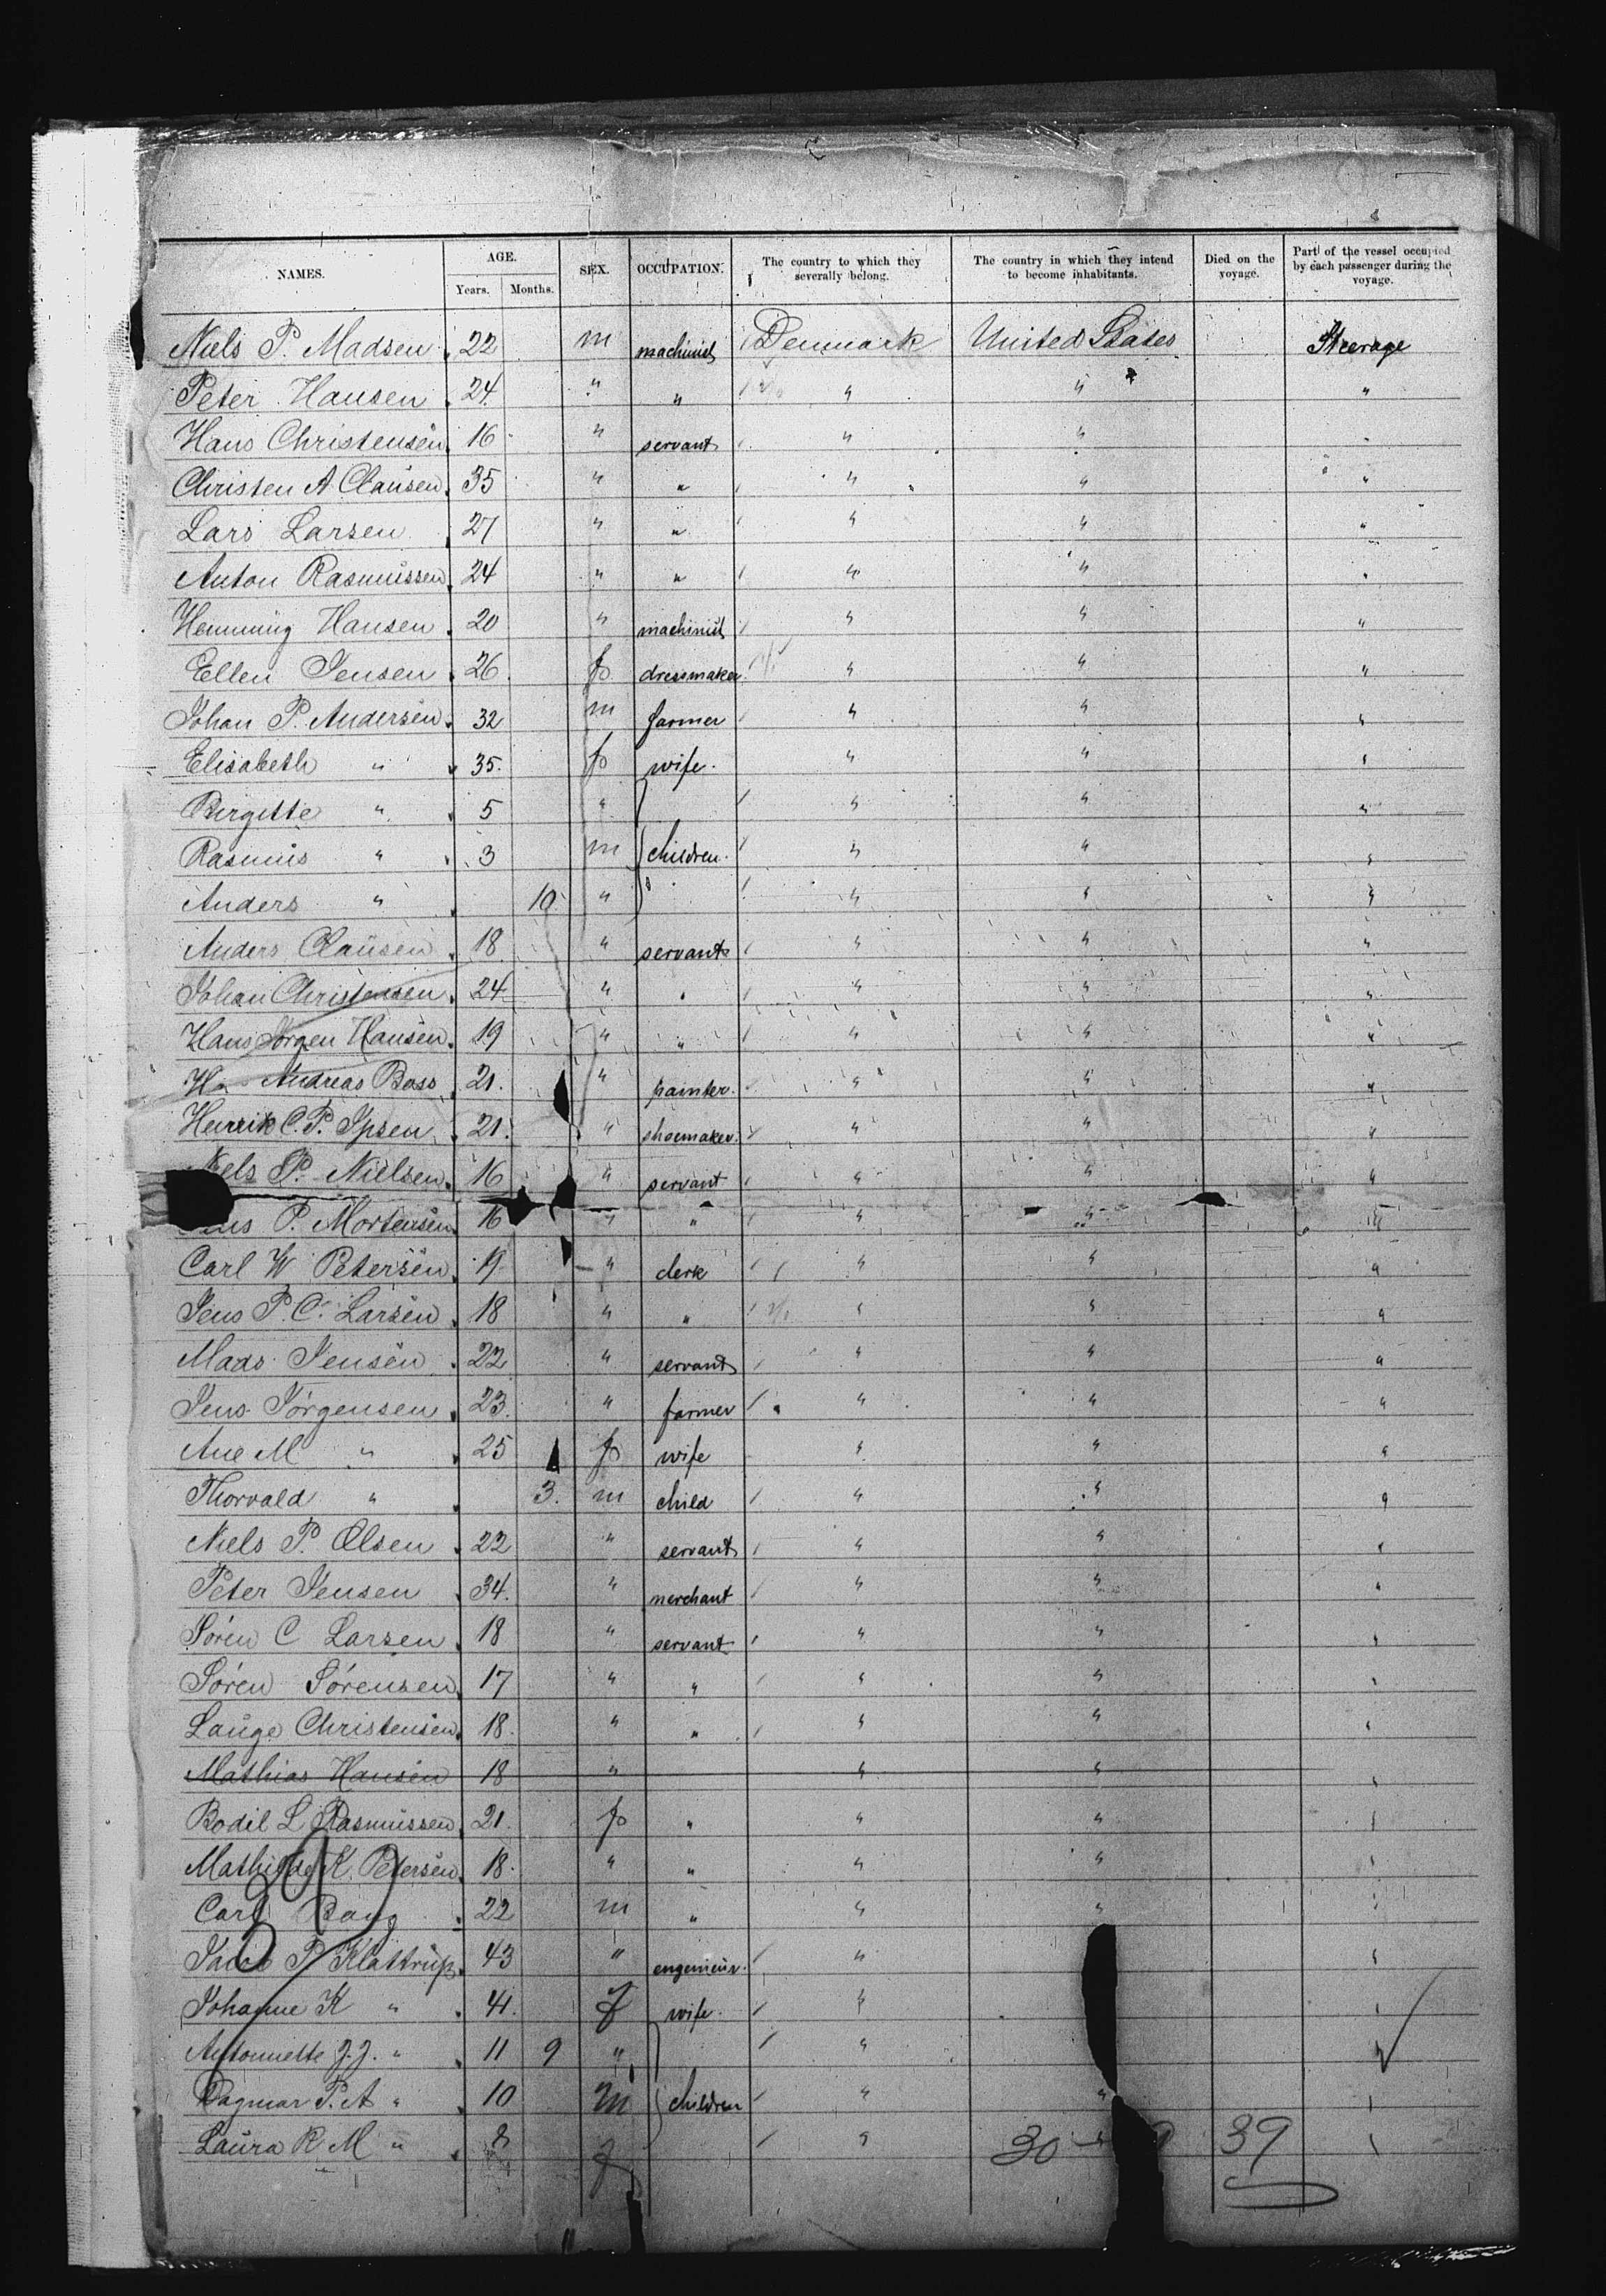 NAMES. AGE. Years. Months. SEX. OCCUPATION. The country to which they severally belong. The country in which they intend to become inhabitants. Died on the voyage. Part of the vessel occupied by each passenger during the voyage.
Niels P. Madsen 22 m machinist Denmark United States Steerage
Peter Hansen 24 " " " " "
Hans Christensen 16 " servant " " "
Christen A Clausen 35 " " " " "
Lars Larsen 27 " " " " "
Anton Rasmussen 24 " " " " "
Hemming Hansen 20 " machinist " " "
Ellen Jensen 26 f dressmaker " " "
Johan P. Andersen 32 m farmer " " "
Elisabeth " 35 f wife " " "
Birgitte " 5 " " " "
Rasmus " 3 m children " " "
Anders " 10 " " " "
Anders Clausen 18 " servant " " "
Johan Christensen 24 " " " " "
Hans Jörgen Hansen 19 " " " " "
Andreas Bass 21 " painter " " "
Henrik C. P. Ipsen 21 " shoemaker " " "
Niels P. Nielsen 16 " servant " " "
P. Mortensen 16 " " " " "
Carl W Petersen 19 " clerk " " "
Jens P. C. Larsen 18 " " " " "
Mads Jensen 22 " servant " " "
Jens Jörgensen 23 " farmer " " "
Ane M " 25 f wife " " "
Thorvald " 3 m child " " "
Niels P. Olsen 22 " servant " " "
Peter Jensen 34 " merchant " " "
Sören C Larsen 18 " servant " " "
Sören Sörensen 17 " " " " "
Lauge Christensen 18 " " " " "
Mathias Hansen 18 " " " "
Bodil L Rasmussen 21 f " " " "
Mathilde K. Petersen 18 " " " " "
Carl Bang 22 m " " " "
Jacob P. Klattrup 43 " engenieur " "
Johanne K " 41 f wife " "
Antonnette J. J. " 11 9 " " "
Dagmar P. A " 10 m children " " "
Laura R. M " 8 f " "
30 39